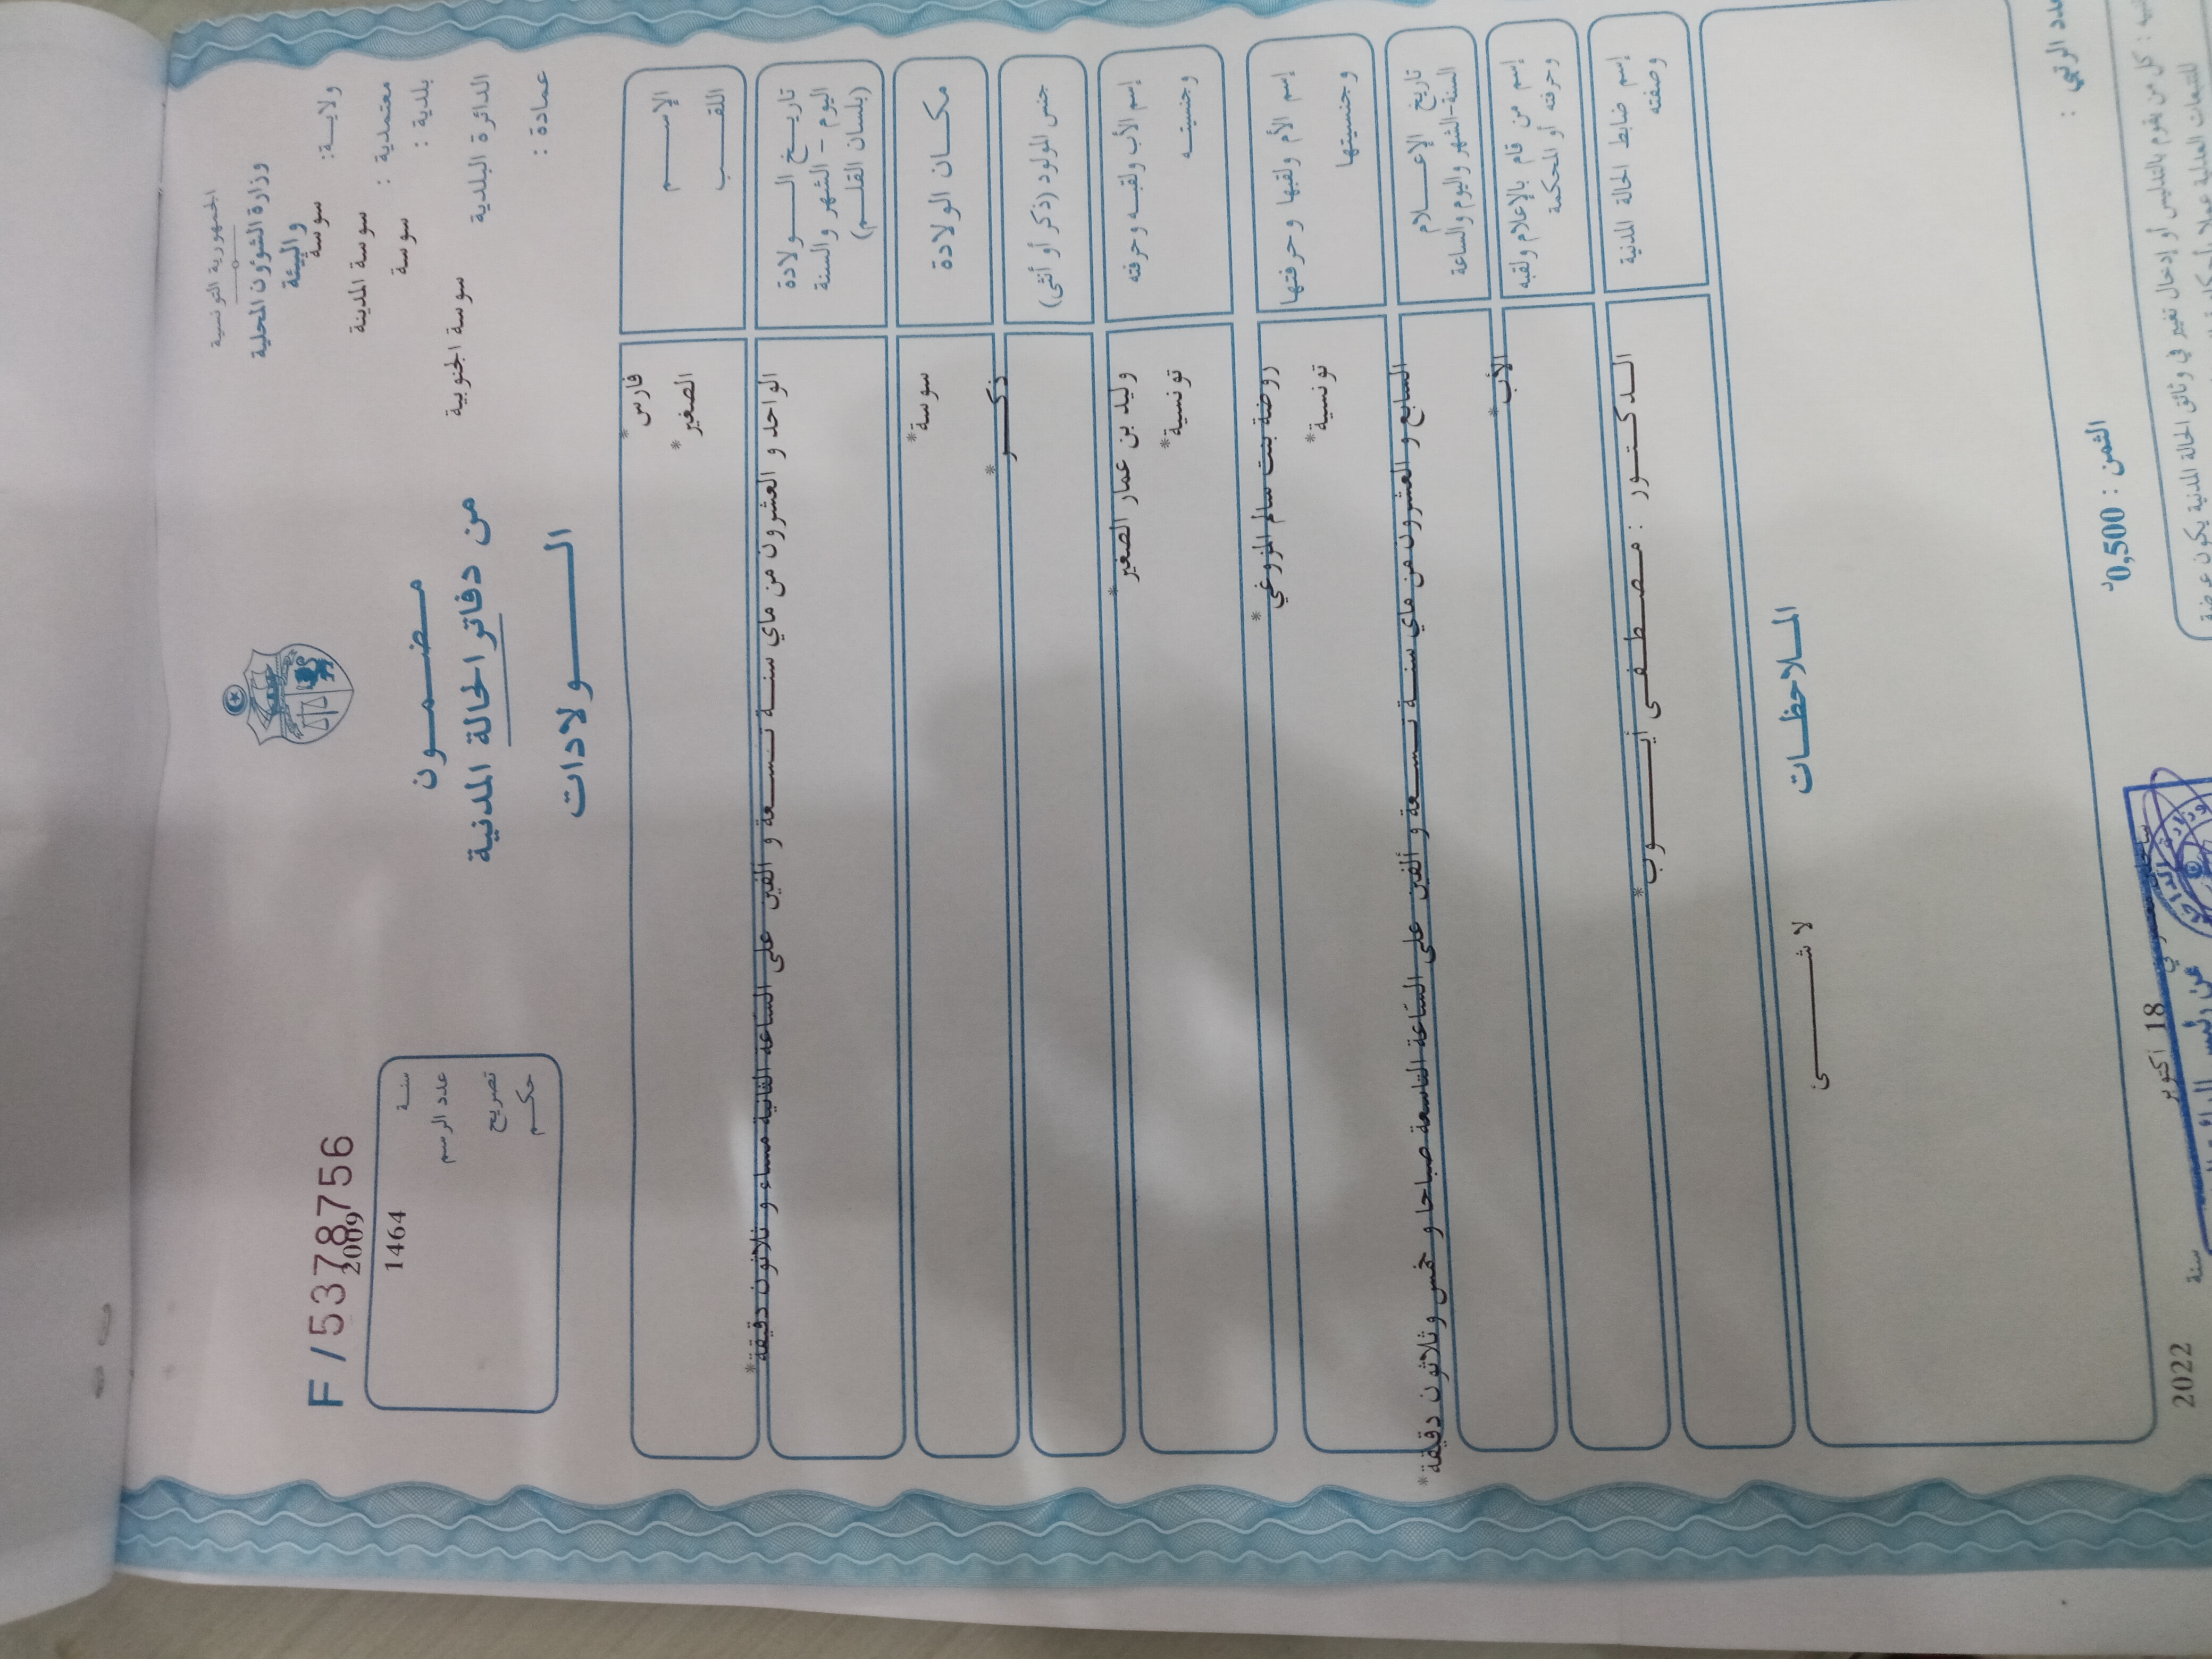 الجمهورية التونسية
وزارة الشؤون المحلية
والبيئة
ولاية: سوسة
معتمدية : سوسة المدينة
بلدية : سوسة
الدائرة البلدية سوسة الجنوبية
عمادة :
مضمون
من دفاتر الحالة المدنية
الولادات
F / 53778756
سنة 2009
عدد الرسم 1464
تصريح
حكم
الإسم فارس*
اللقب الصغير*
تاريخ الولادة
اليوم - الشهر والسنة
(بلسان القلم)
الواحد و العشرون من ماي سنة تسعة و ألفين على الساعة الثانية مساء و ثلاثون دقيقة*
مكان الولادة سوسة*
جنس المولود (ذكر أو أنثى) ذكر*
إسم الأب ولقبه وحرفته وليد بن عمار الصغير*
وجنسيته تونسية*
إسم الأم ولقبها وحرفتها روضة بنت سالم المزوغي*
وجنسيتها تونسية*
تاريخ الإعلام
السنة-الشهر واليوم والساعة
السابع و العشرون من ماي سنة تسعة و ألفين على الساعة التاسعة صباحا و خمس وثلاثون دقيقة*
إسم من قام بالإعلام ولقبه
وحرفته أو المحكمة
الأب*
إسم ضابط الحالة المدنية
وصفته
الدكتور : مصطفى أيوب*
الملاحظات
لا شئ
الرتبي :
الثمن : 0,500 د
18 أكتوبر
سنة 2022
عن رئيس
كل من يقوم بالتدليس أو إدخال تغيير في وثائق الحالة المدنية يكون عرضة
للتتبعات العدلية عملا